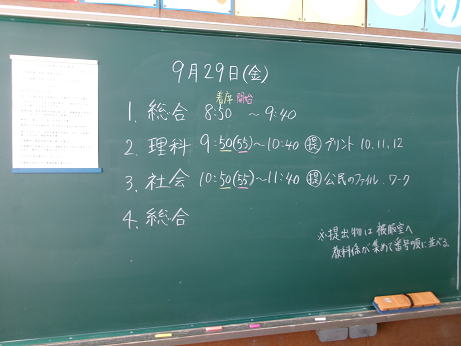 9月29日(金)
着席 開始
1. 総合 8:50 ～ 9:40
2. 理科 9:50(55)～10:40 提 プリント 10, 11, 12
3. 社会 10:50(55)～11:40 提 公民のファイル、ワーク
4. 総合
※提出物は被服室へ
教科係が集めて番号の順に並べる。